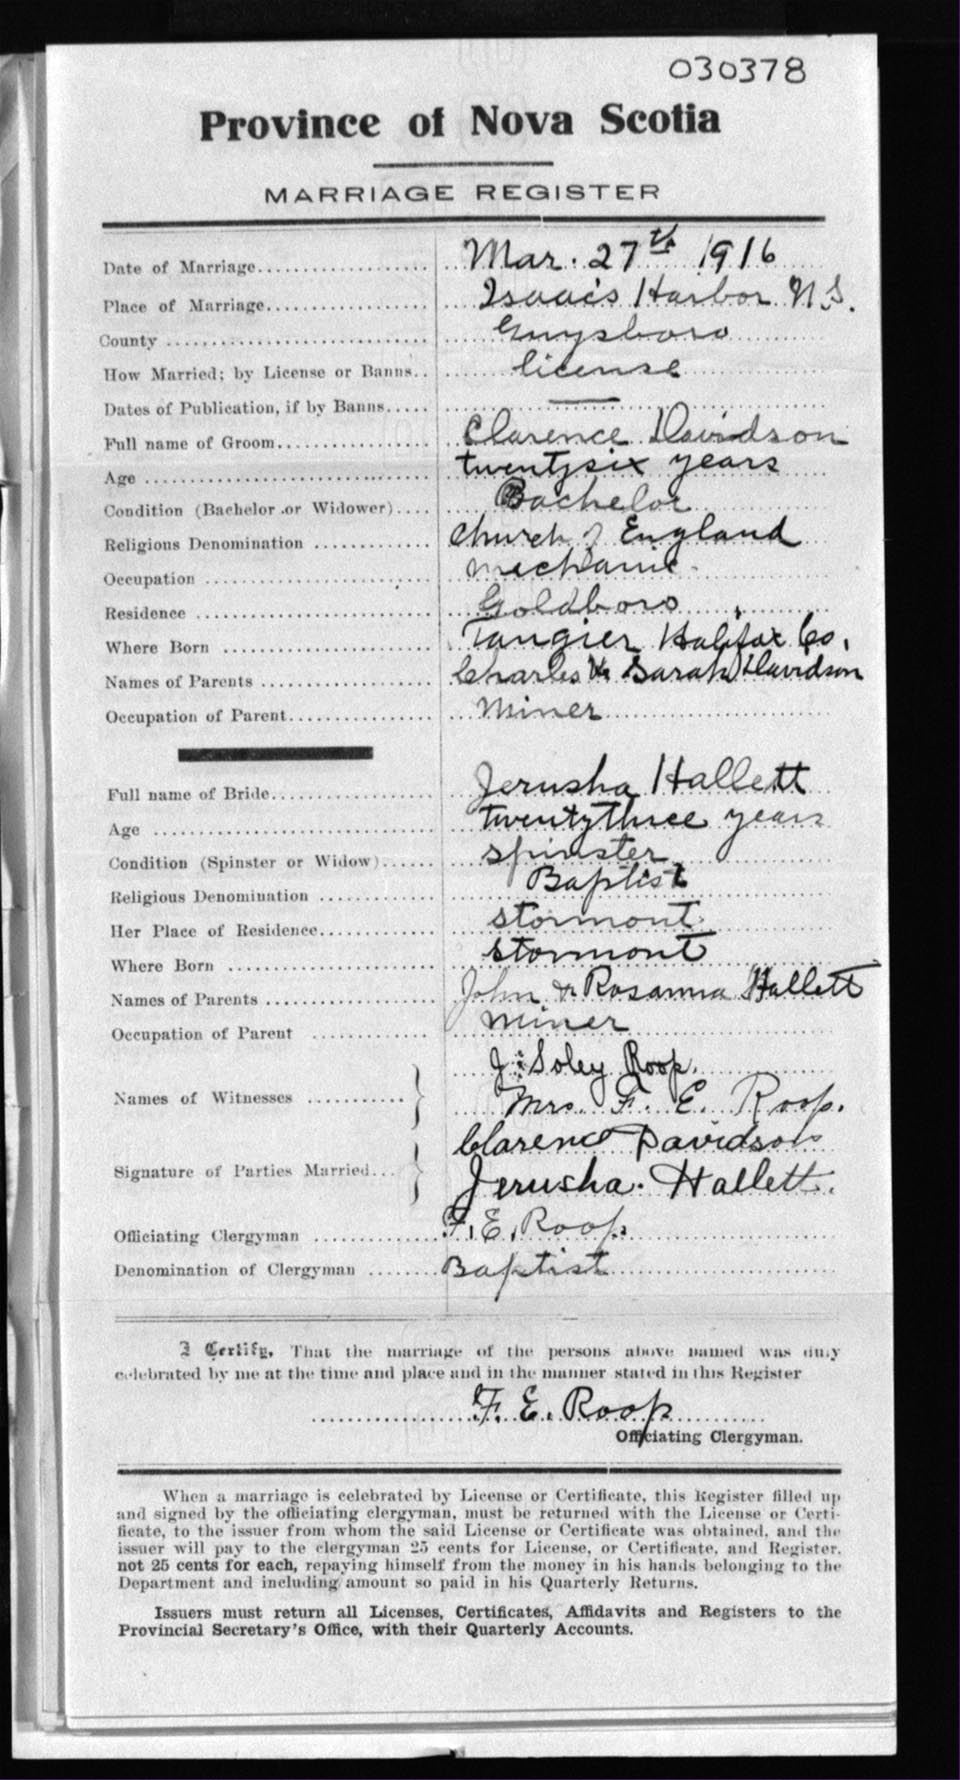 030378
Province of Nova Scotia
MARRIAGE REGISTER
Date of Marriage Mar. 27th 1916
Place of Marriage Isaac's Harbor N.S.
County Guysboro
How Married; by License or Banns license
Dates of Publication, if by Banns —
Full name of Groom Clarence Davidson
Age twentysix years
Condition (Bachelor or Widower) Bachelor
Religious Denomination Church of England
Occupation mechanic
Residence Goldboro
Where Born Tangier Halifax Co.
Names of Parents Charles & Sarah Davidson
Occupation of Parent Miner
Full name of Bride Jerusha Hallett
Age twentythree years
Condition (Spinster or Widow) spinster
Religious Denomination Baptist
Her Place of Residence stormont
Where Born stormont
Names of Parents John & Rosanna Hallett
Occupation of Parent miner
J. Soley Roop
Names of Witnesses
Mrs. F. E. Roop.
Clarence Davidson
Signature of Parties Married
Jerusha. Hallett.
Officiating Clergyman F. E. Roop.
Denomination of Clergyman Baptist
I Certify, That the marriage of the persons above named was duly
celebrated by me at the time and place and in the manner stated in this Register
F. E. Roop
Officiating Clergyman.
When a marriage is celebrated by License or Certificate, this Register filled up
and signed by the officiating clergyman, must be returned with the License or Certi-
ficate, to the issuer from whom the said License or Certificate was obtained, and the
issuer will pay to the clergyman 25 cents for License, or Certificate, and Register.
not 25 cents for each, repaying himself from the money in his hands belonging to the
Department and including amount so paid in his Quarterly Returns.
Issuers must return all Licenses, Certificates, Affidavits and Registers to the
Provincial Secretary's Office, with their Quarterly Accounts.